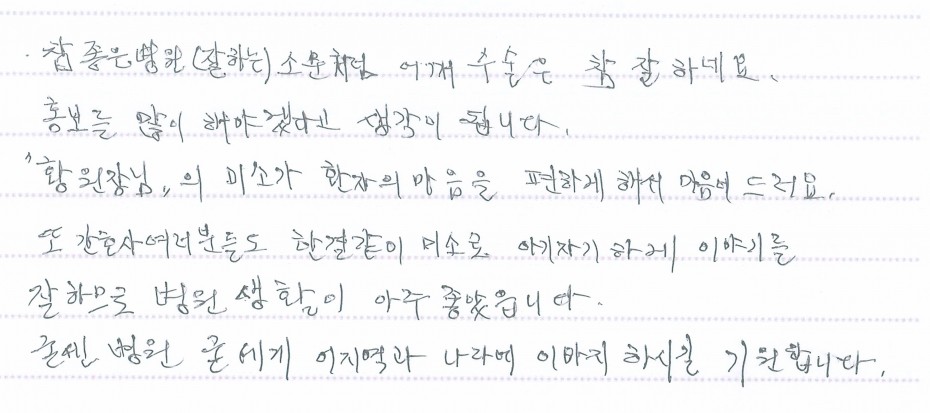 · 참 좋은병원(잘하는)소문처럼 어깨 수술은 참 잘 하네요.
홍보를 많이 해야겠다고 생각이 됩니다.
'황원장님,의 미소가 환자의 마음을 편하게 해서 마음에 드러요.
또 간호사여러분들도 한결같이 미소로 아기자기하게 이야기를
잘 하므로 병원 생활이 아주 좋았읍니다.
굳센 병원 굳세게 이지역과 나라에 이바지 하시길 기원합니다.